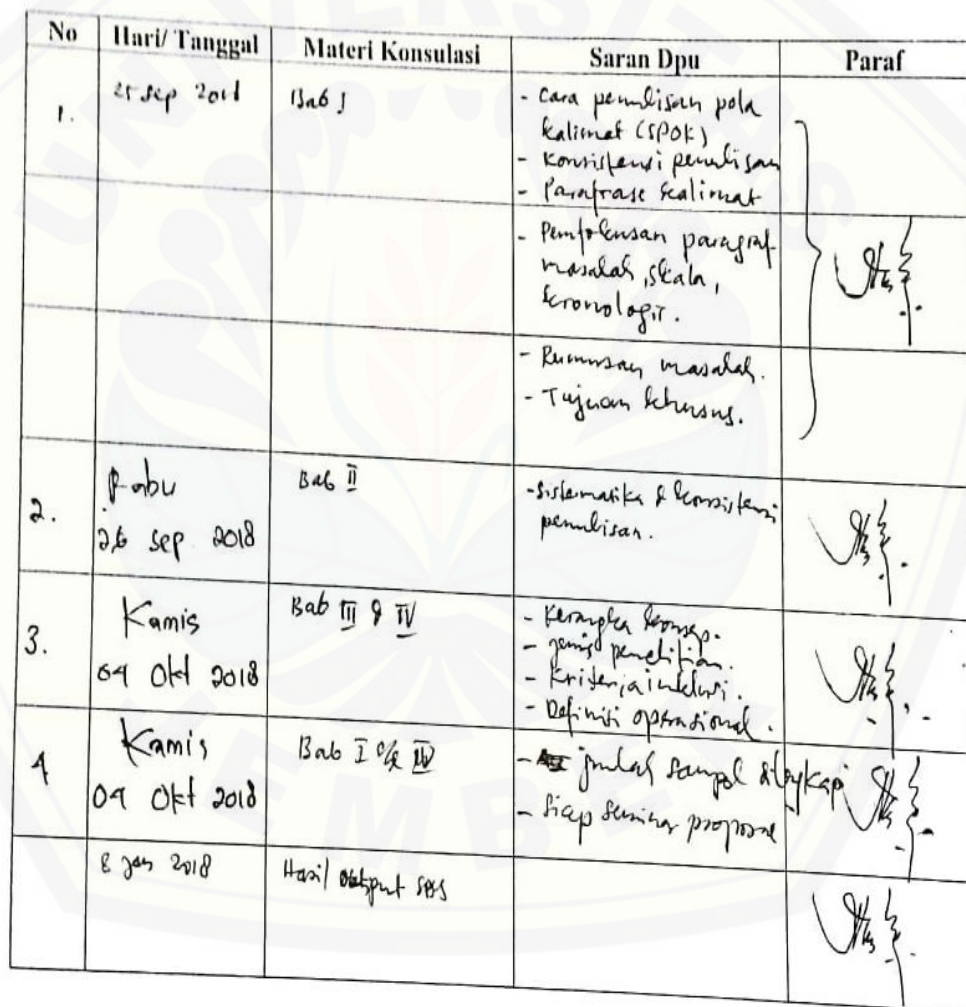 No Hari/ Tanggal Materi Konsulasi Saran Dpu Paraf
1. 25 Sep 2018 Bab I - Cara penulisan pola
kalimat (SPOK)
- Konsistensi penulisan
- Parafrase kalimat
- Pemfokusan paragraf
masalah, skala,
kronologis.
- Rumusan masalah.
- Tujuan khusus.
2. Rabu Bab II - Sistematika & konsistensi
26 Sep 2018 penulisan.
3. Kamis Bab III & IV - Kerangka konsep.
04 Okt 2018 - jenis penelitian.
- Kriteria inklusi.
- Definisi operasional.
4 Kamis Bab I IV - jumlah sampel dilengkapi
04 Okt 2018 - Siap seminar proposal
8 Jan 2018 Hasil output SPSS
UNIVERSITAS
JEMBER